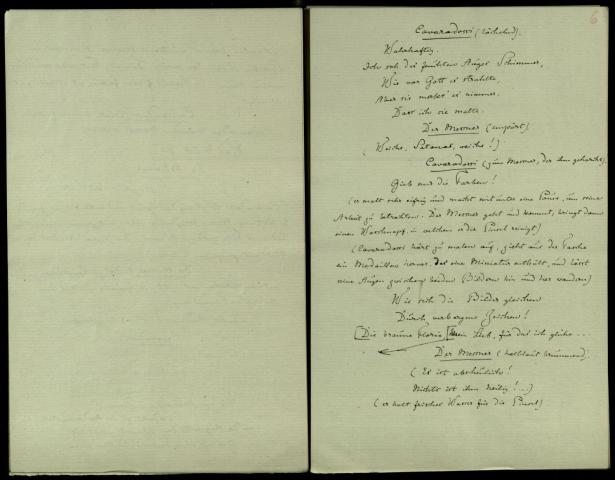 6
Cavaradossi (lächelnd).
Wahrhaftig.
Ich sah der feuchten Augen Schimmer,
Wie vor Gott er strahlte,
Aber sie merkt' es nimmer,
Dass ich sie malte.
Der Messner (empört)
(Weiche, Satanas, weiche!)
Cavaradossi (zum Messner, der ihm gehorcht).
Gieb mir die Farben!
(er malt sehr eifrig und macht mitunter eine Pause, um seine
Arbeit zu betrachten. Der Messner geht und kommt, bringt dann
einen Waschnapf, in welchem er die Pinsel reinigt)
(Cavaradossi hört zu malen auf, zieht aus der Tasche
ein Medaillon hervor, das eine Miniatur enthält, und lässt
seine Augen zwischen beiden Bildern hin und her wandern)
Wie sich die Bilder gleichen
Durch verborgene Zeichen!
[Die braune Floria, [mein Lieb, für das ich glühe...
Der Messner (halblaut brummend).
(Es ist abscheulich!
Nichts ist ihm heilig!...)
(er holt frisches Wasser für die Pinsel)